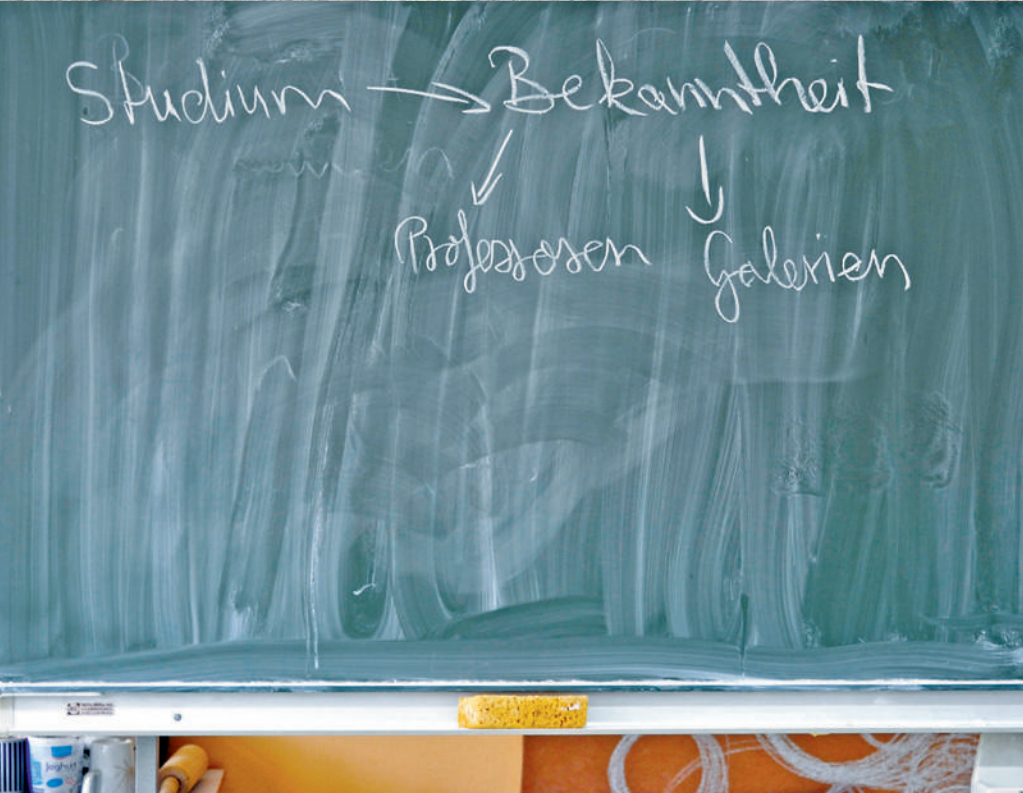 Studium → Bekanntheit
Professoren Galerien
Joghurt